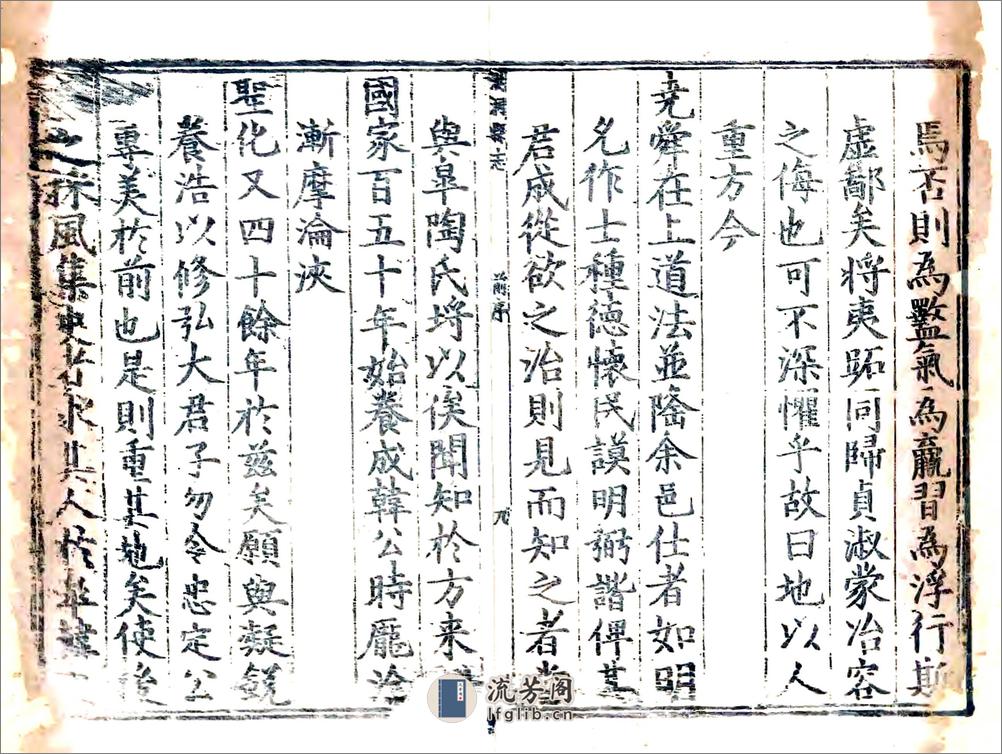 焉否則為盭氣為羸習為浮行斯
虛鄙矣將夷跖同歸貞淑蒙冶容
之侮也可不深懼乎故曰地以人
重方今
堯舜在上道法並隆余邑仕者如明
允作士種德懷民謨明弼諧俾其
君成從欲之治則見而知之者當
與皋陶氏埒以俟聞知於方来
國家百五十年始養成韓公時厖淪
漸摩淪浹
聖化又四十餘年於茲矣願與凝銳
養浩以修弘大君子勿令忠定公
專美於前也是則重其地矣使後
之採風集史者求其人於
縣志
前序
九
流芳阁
lfglib.cn